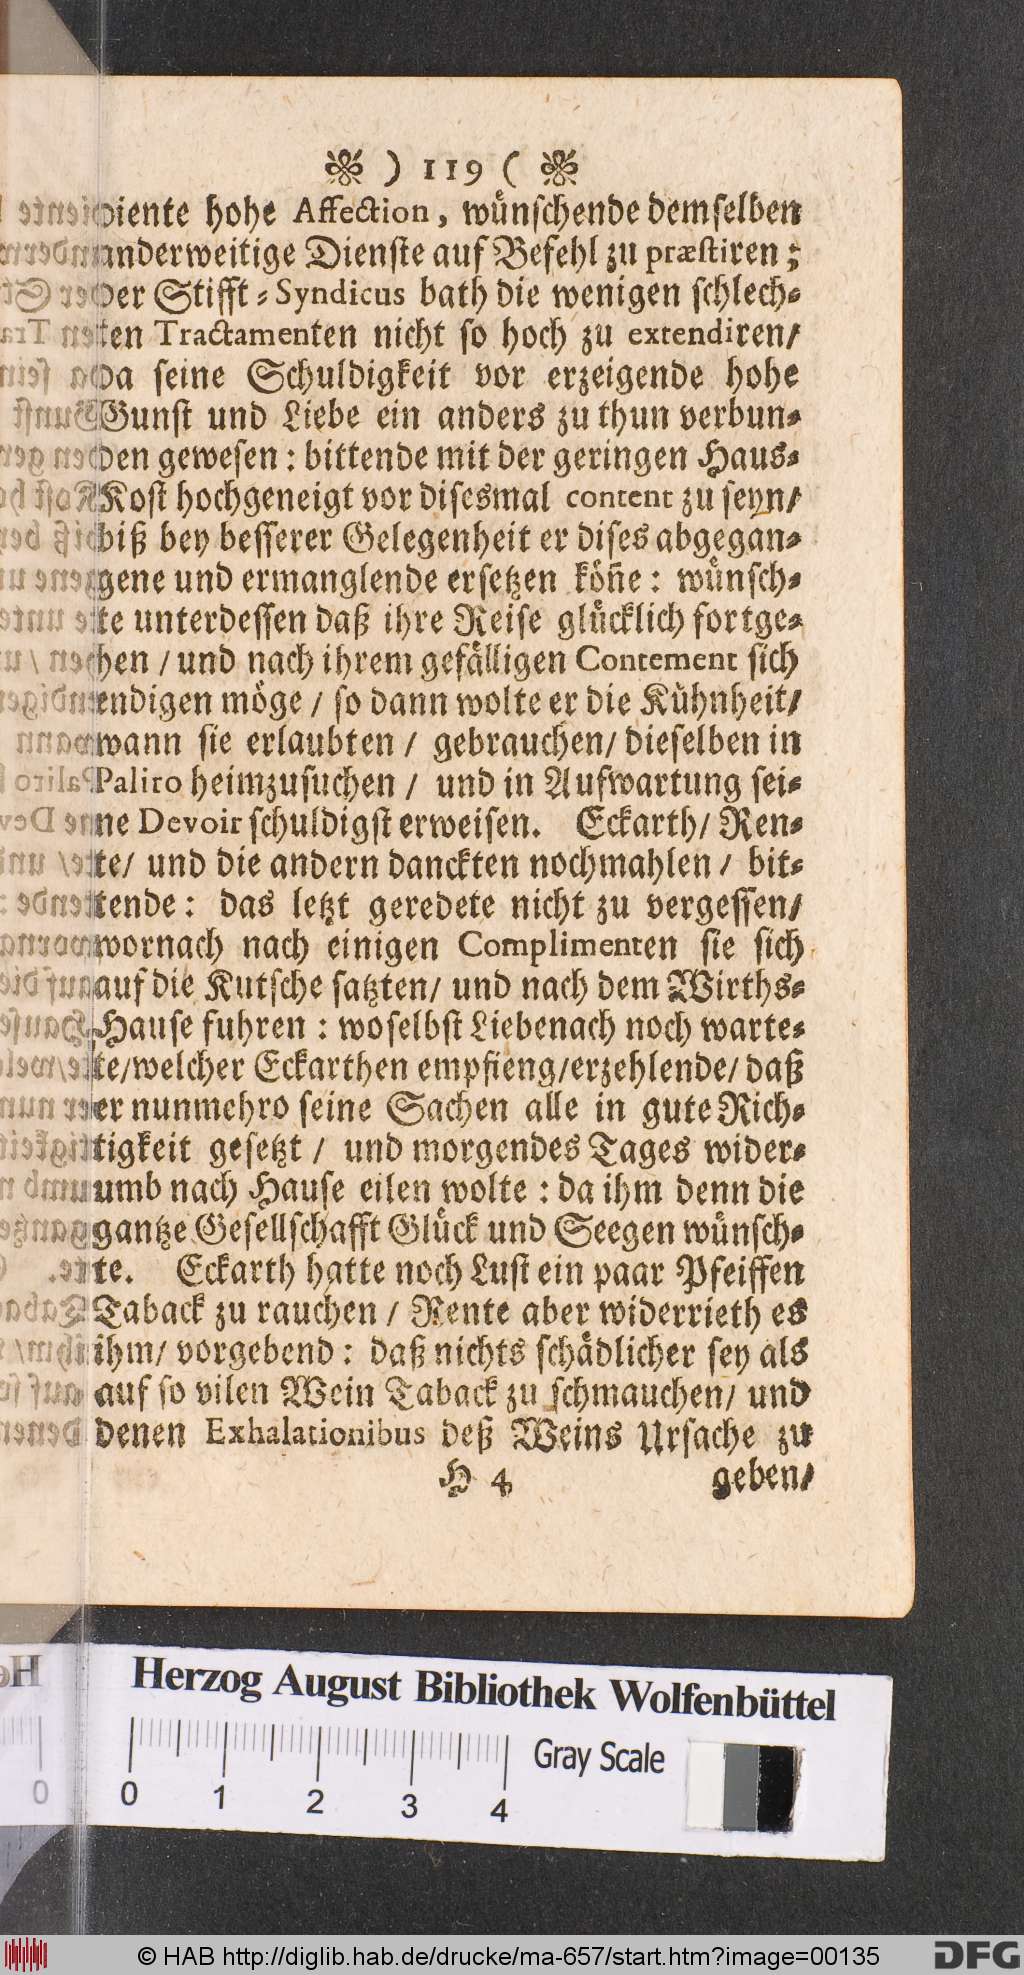 ) 119 (
diente hohe Affection, wünschende demselben
anderweitige Dienste auf Befehl zu præstiren;
Der Stifft-Syndicus bath die wenigen schlech-
ten Tractamenten nicht so hoch zu extendiren/
da seine Schuldigkeit vor erzeigende hohe
Gunst und Liebe ein anders zu thun verbun-
den gewesen: bittende mit der geringen Haus-
Kost hochgeneigt vor disesmal content zu seyn/
biß bey besserer Gelegenheit er dises abgegan-
gene und ermanglende ersetzen köñe: wünsch-
te unterdessen daß ihre Reise glücklich fortge-
hen / und nach ihrem gefälligen Contement sich
endigen möge / so dann wolte er die Kühnheit/
wann sie erlaubten / gebrauchen/ dieselben in
Paliro heimzusuchen / und in Aufwartung sei-
ne Devoir schuldigst erweisen. Eckarth/ Ren-
te/ und die andern danckten nochmahlen / bit-
tende: das letzt geredete nicht zu vergessen/
wornach nach einigen Complimenten sie sich
auf die Kutsche satzten/ und nach dem Wirths-
Hause fuhren: woselbst Liebenach noch warte-
te/welcher Eckarthen empfieng/erzehlende/ daß
er nunmehro seine Sachen alle in gute Rich-
tigkeit gesetzt / und morgendes Tages wider-
umb nach Hause eilen wolte: da ihm denn die
gantze Gesellschafft Glück und Seegen wünsch-
te. Eckarth hatte noch Lust ein paar Pfeiffen
Taback zu rauchen / Rente aber widerrieth es
ihm/ vorgebend: daß nichts schädlicher sey als
auf so vilen Wein Taback zu schmauchen/ und
denen Exhalationibus deß Weins Ursache zu
H 4 geben/
Herzog August Bibliothek Wolfenbüttel
Gray Scale
0 1 2 3 4
© HAB http://diglib.hab.de/drucke/ma-657/start.htm?image=00135
DFG